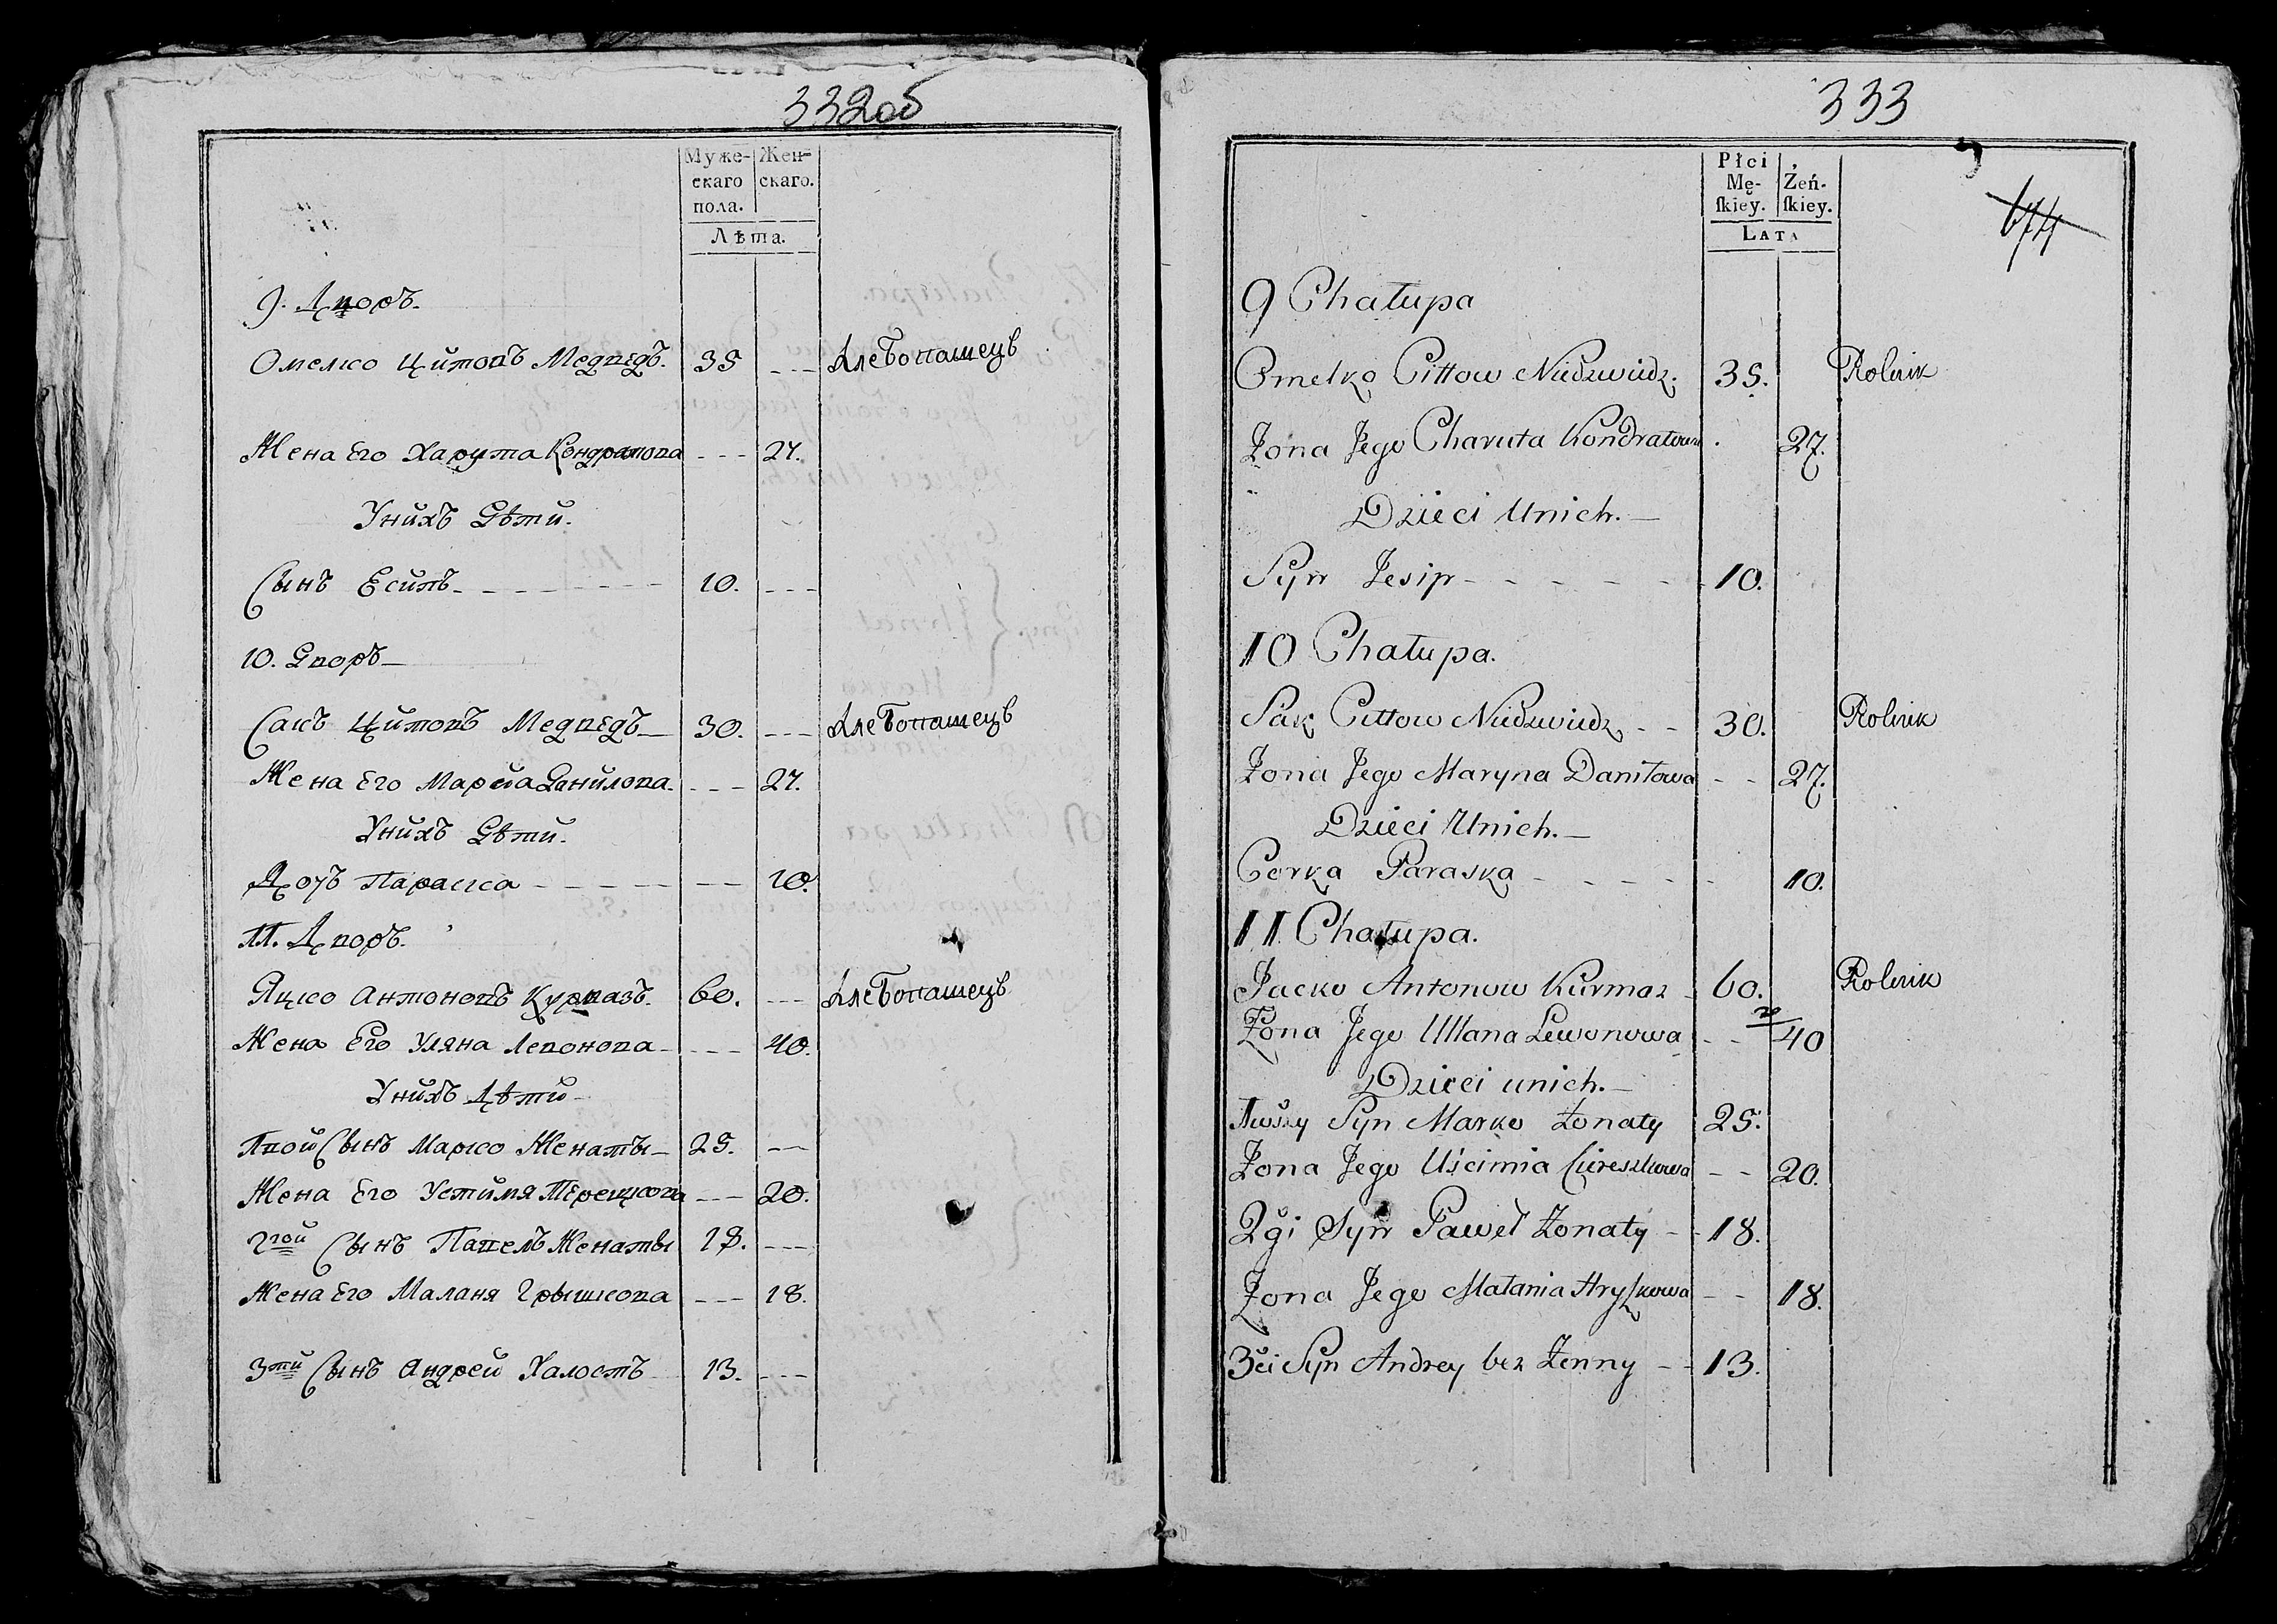 332об
Муже- Жен-
скаго скаго.
пола.
Лѣта.
9. Дворъ.
Омелко Цитовъ Медведъ. 35 --- Хлебопашецъ
Жена Его Харута Кондратова --- 27.
Унихъ Дѣти.
Сынъ Есипъ 10. ---
10. Дворъ
Сакъ Цитовъ Медведъ 30. --- Хлебопашецъ
Жена Его Данилова. --- 27.
Унихъ Дѣти.
Дочъ Параска --- 10.
11. Дворъ.
Яцко Антоновъ Курмазъ. 60. --- Хлебопашецъ
Жена Его Уляна Левонова --- 40.
Унихъ Дѣти
1вой Сынъ Марко Женаты 25. ---
Жена Его Устимя Терешкова --- 20.
2гой Сынъ Павелъ Женаты 18. ---
Жена Его Маланя Грышкова --- 18.
3тй Сынъ Андрей Халостъ 13. ---
333
674
Płci
Mę- Żeń-
ſkiey. ſkiey.
LATA
9 Chałupa
Omelko Cittow Niedzwiedz. 35. Rolnik
Żona Jego Charuta Kondratowa 27.
Dzieci Unich.
Syn Jesip 10.
10 Chałupa.
Sak Cittow Niedzwiedz 30. Rolnik
Żona Jego Maryna Daniłowa -- 27.
Dzieci Unich.
Corka Paraska 10.
11 Chałupa.
Jacko Antonow Kurmaz 60. Rolnik
Żona Jego Ullana Lewonowa -- 40
Dzieci unich.
1wszy Syn Marko żonaty 25.
Żona Jego Uścimia Ciereszkowa -- 20.
2gi Syn Paweł Żonaty 18.
Żona Jego Małania Hryſzkowa -- 18.
3ci Syn Andrey bez Żenny -- 13.